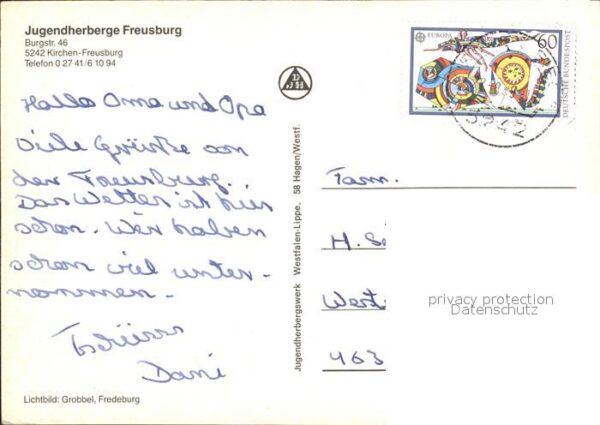 Jugendherberge Freusburg
Burgstr. 46
5242 Kirchen-Freusburg
Telefon 0 27 41/6 10 94
Hallo Oma und Opa
Viele Grüsse von
der Freusburg.
Das Wetter ist hier
schon. Wir haben
schon viel unter-
nommen.
Tschüsss
Dani
Lichtbild: Grobbel, Fredeburg
Jugendherbergswerk Westfalen-Lippe, 58 Hagen/Westf.
DJH
EUROPA
60
DEUTSCHE BUNDESPOST
5242
Fam.
H. S
West
463
privacy protection
Datenschutz